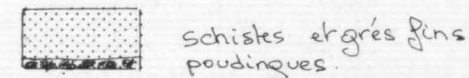 schistes et grés fins
poudingues.